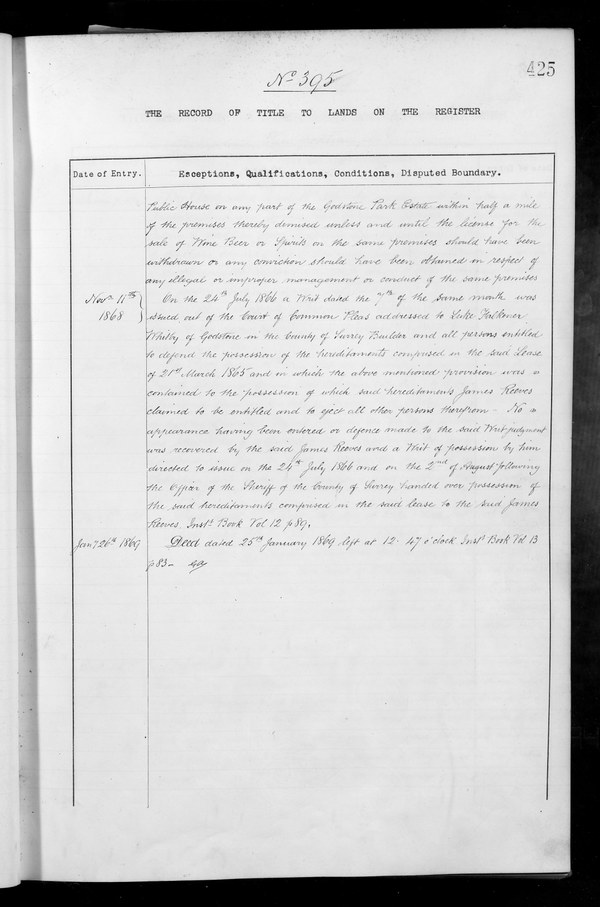 425
No 395
THE RECORD OF TITLE TO LANDS ON THE REGISTER
Date of Entry.
Exceptions, Qualifications, Conditions, Disputed Boundary.
Public House on any part of the Godstone Park Estate within half a mile
of the premises thereby demised unless and until the license for the
sale of Wine Beer or Spirits on the same premises should have been
withdrawn or any conviction should have been obtained in respect of
any illegal or improper management or conduct of the same premises
Novr 11th 1868
On the 24th July 1866 a Writ dated the 7th of the same month was
issued out of the Court of Common Pleas addressed to Luke Faulkner
Whitby of Godstone in the County of Surrey Builder and all persons entitled
to defend the possession of the hereditaments comprised in the said Lease
of 21st March 1865 and in which the above mentioned provision was
contained to the possession of which said hereditaments James Reeves
claimed to be entitled and to eject all other persons therefrom - No
appearance having been entered or defence made to the said Writ judgment
was recovered by the said James Reeves and a Writ of possession by him
directed to issue on the 24th July 1866 and on the 2nd of August following
the Officer of the Sheriff of the County of Surrey handed over possession of
the said hereditaments comprised in the said lease to the said James
Reeves Inst. Book Vol 12 p 89.
Jany 26th 1869
Deed dated 25th January 1869 left at 12. 47 o'clock Inst. Book Vol 13
p 83 -